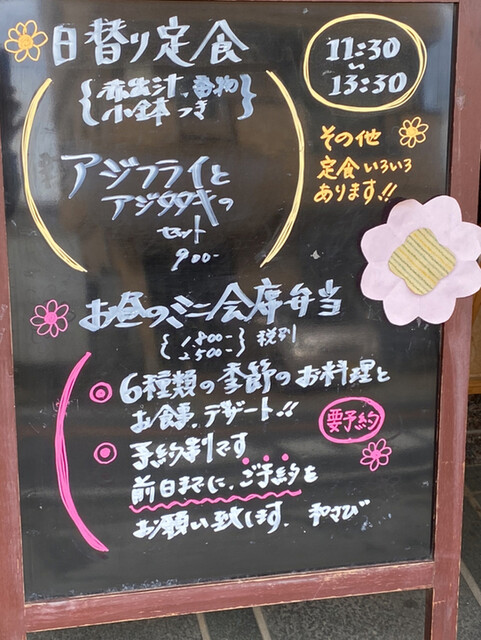 日替り定食
{赤出汁、香物
小鉢つき}
アジフライと
アジタタキの
セット
900-
11:30
〜
13:30
その他
定食いろいろ
あります!!
お昼のミニ会席弁当
{1,800-
2,500-} 税別
◎6種類の季節のお料理と
お食事、デザート!!
要予約
◎予約制です
前日までに、ご予約を
お願い致します。 和さび